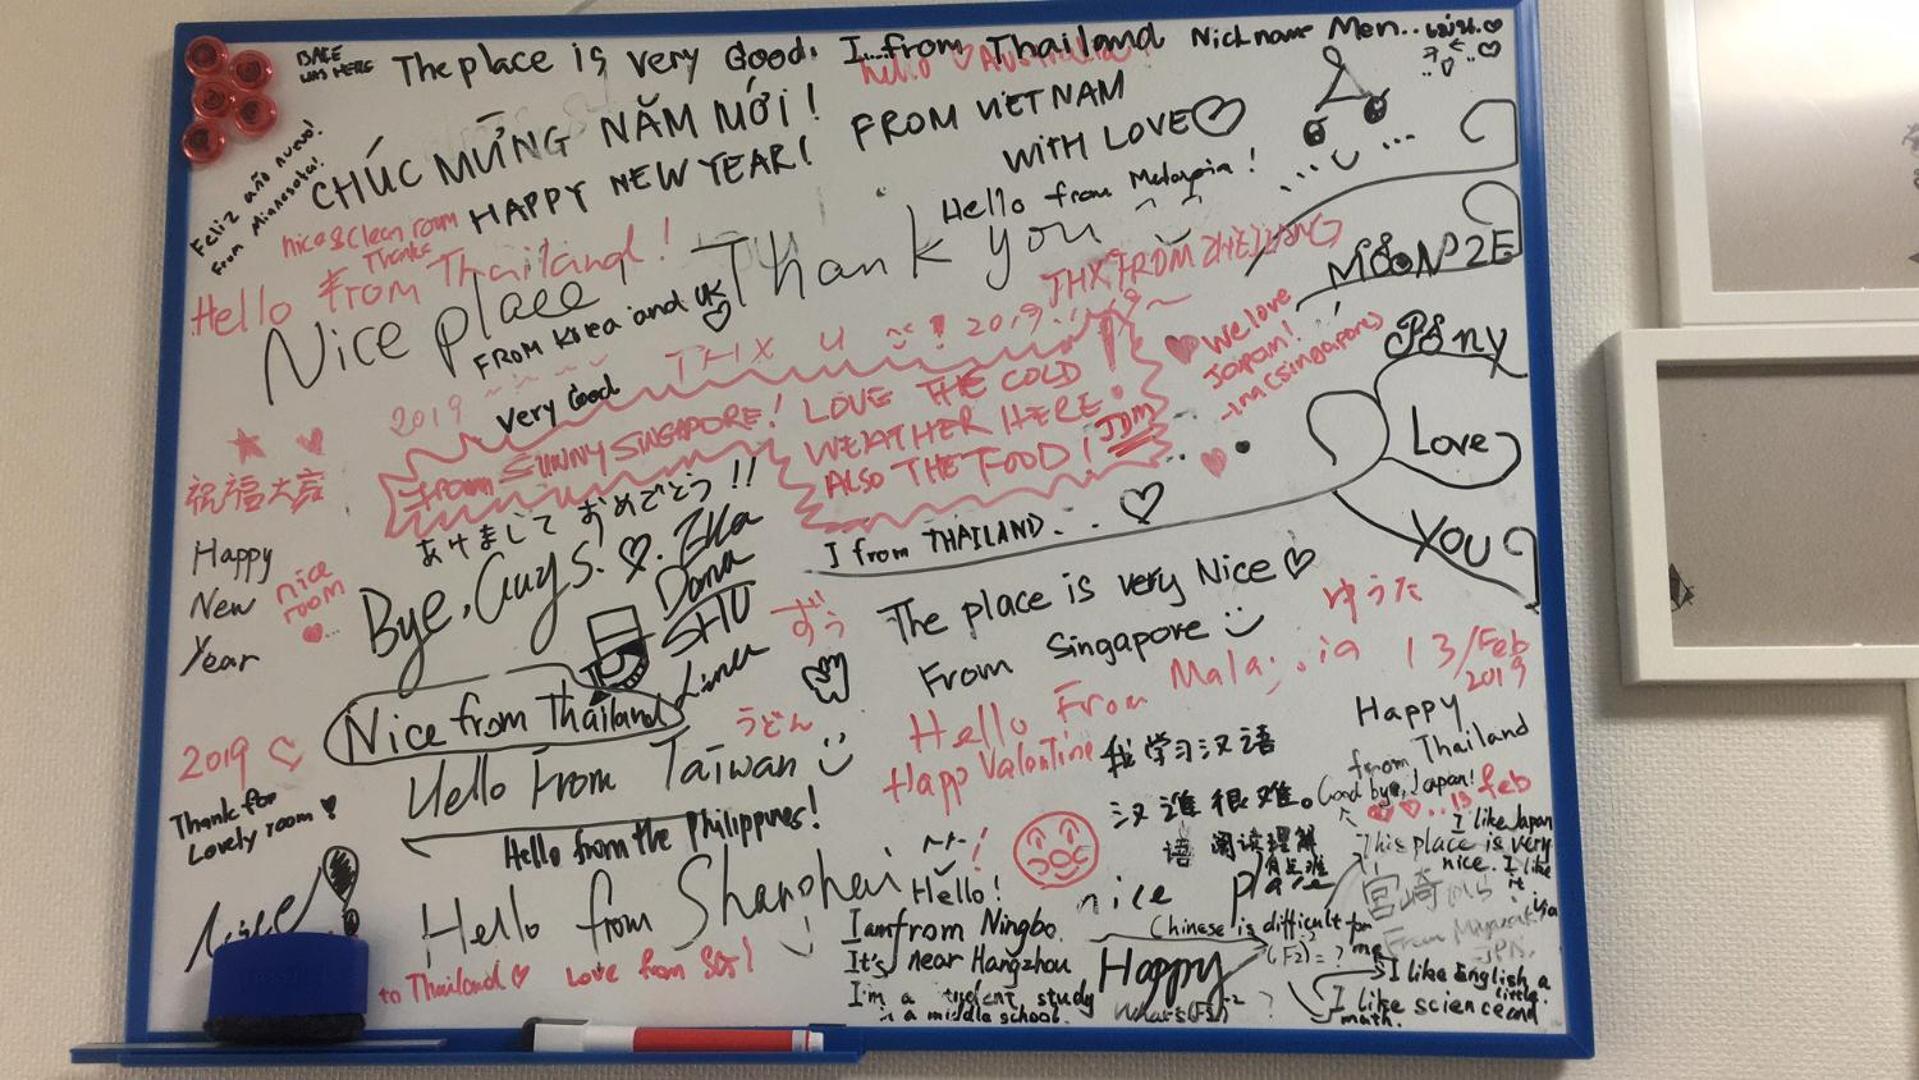 BALE
WAS HERE
The place is very Good. I...from Thailand Nickname Men..
hello Australia
CHÚC MỪNG NĂM MỚI! FROM VIETNAM
HAPPY NEW YEAR! WITH LOVE♡
Feliz año nuevo!
from Minnesota!
nice & clean room
Thanks
Hello from Malaysia!
Hello from Thailand!
Nice place Thank you
THX FROM ZHEJIANG
FROM Korea and UK
♡
THX U ! 2019.!
2019
very Good
We love
Japan!
(singapore)
from SUNNY SINGAPORE! LOVE THE COLD
WEATHER HERE.
ALSO THE FOOD! JDM
Love
YOU
祝福大吉
あけまして おめでとう!!
I from THAILAND... ♡
Happy
New
Year
nice
room
Bye, Guys. ♡.
Dana
SHU
The place is very Nice♡
From Singapore
ゆうた
Nice from Thailand
うどん
Hello From Malaysia 13/Feb
2019
Happ Valentine
2019 ♡
Hello From Taiwan
Thank for
Lovely room
Hello from the Philippines!
我学习汉语
汉 很难。
语 阅读理解
有点难
Happy
from Thailand
Good bye, Japan!
13 feb
I like Japan
This place is very
nice. I like
it
宮崎
Nice
Hello from Shanghai
Hello!
nice place
I am from Ningbo.
It's near Hangzhou
I'm a student, study
in a middle school.
Chinese is difficult for
me
Happy
What's
I like English a
little.
I like science and
math.
to Thailand♡ Love from SG!